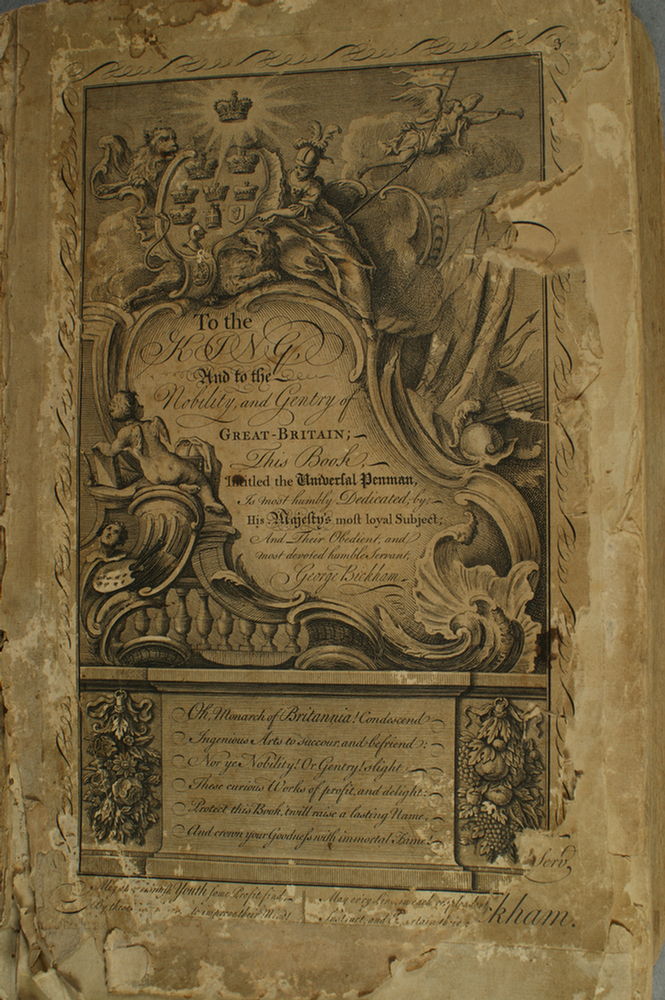 To the
KING,
And to the
Nobility, and Gentry of
GREAT-BRITAIN;
This Book,
Intitled the Univerſal Penman,
Is most humbly Dedicated, by;
His Majeſty's moſt loyal Subject;
And Their Obedient, and
most devoted humble Servant,
George Bickham.
Oh, Monarch of Britannia! Condescend
Ingenious Arts to succour, and befriend:
Nor ye Nobility! Or Gentry! slight,
These curious Works of profit, and delight:
Protect this Book, 'twill raise a lasting Name,
And crown your Goodneſs with immortal Fame!
Serv
Youth some Profit find,
to improve their Mind
May every
Instruct, and
kham.